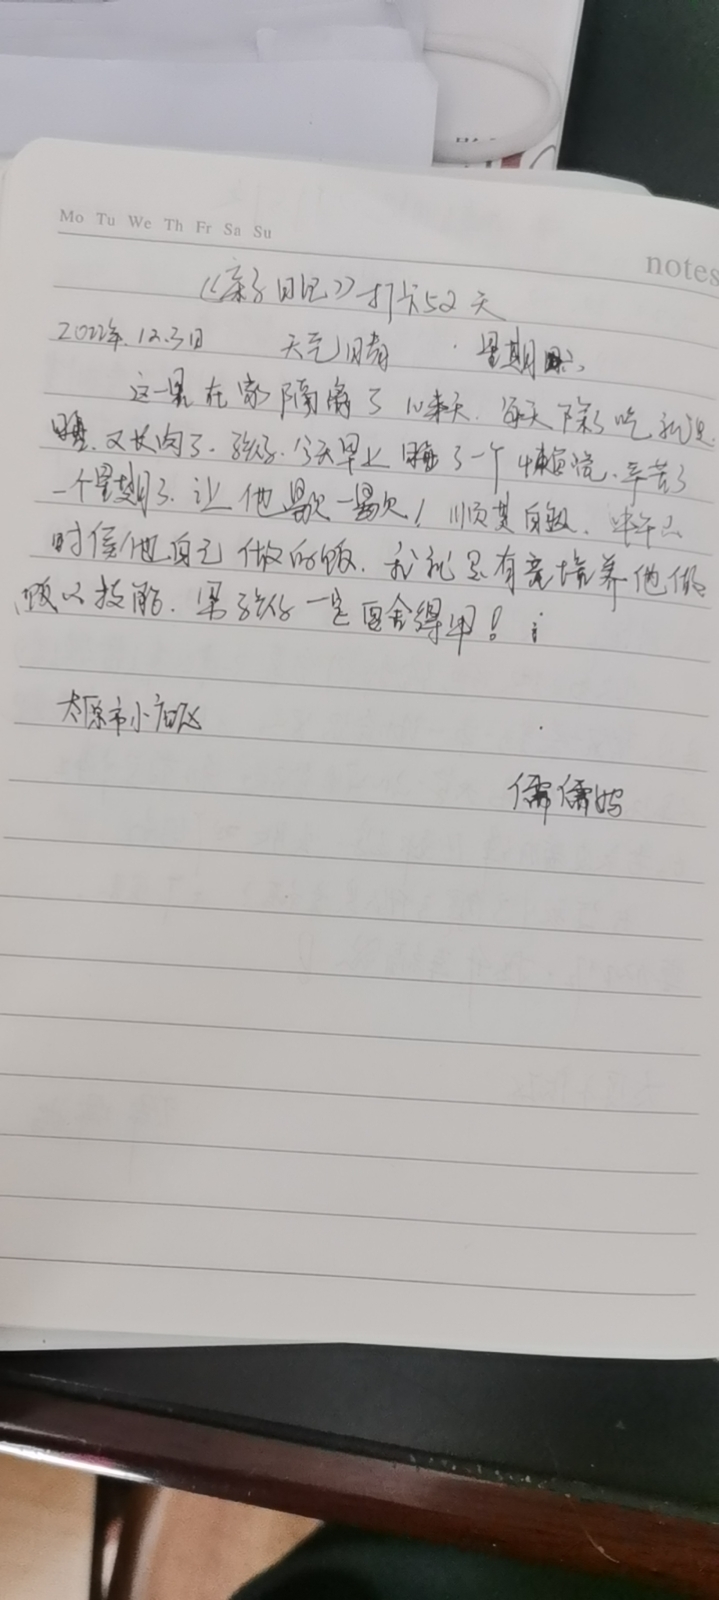 Mo Tu We Th Fr Sa Su
notes
《亲子日记》打卡52天
2022年.12.3日 天气晴 星期六
这一周在家隔离了10来天.每天除了吃就是
睡.又长肉了.孩子.今天早上睡了一个懒觉.辛苦了
一个星期了.让他歇一歇!顺其自然.中午
时候他自己做的饭.我就是有意培养他做
饭的技能.男孩子一定要舍得用!
太原市小店区
儒儒妈